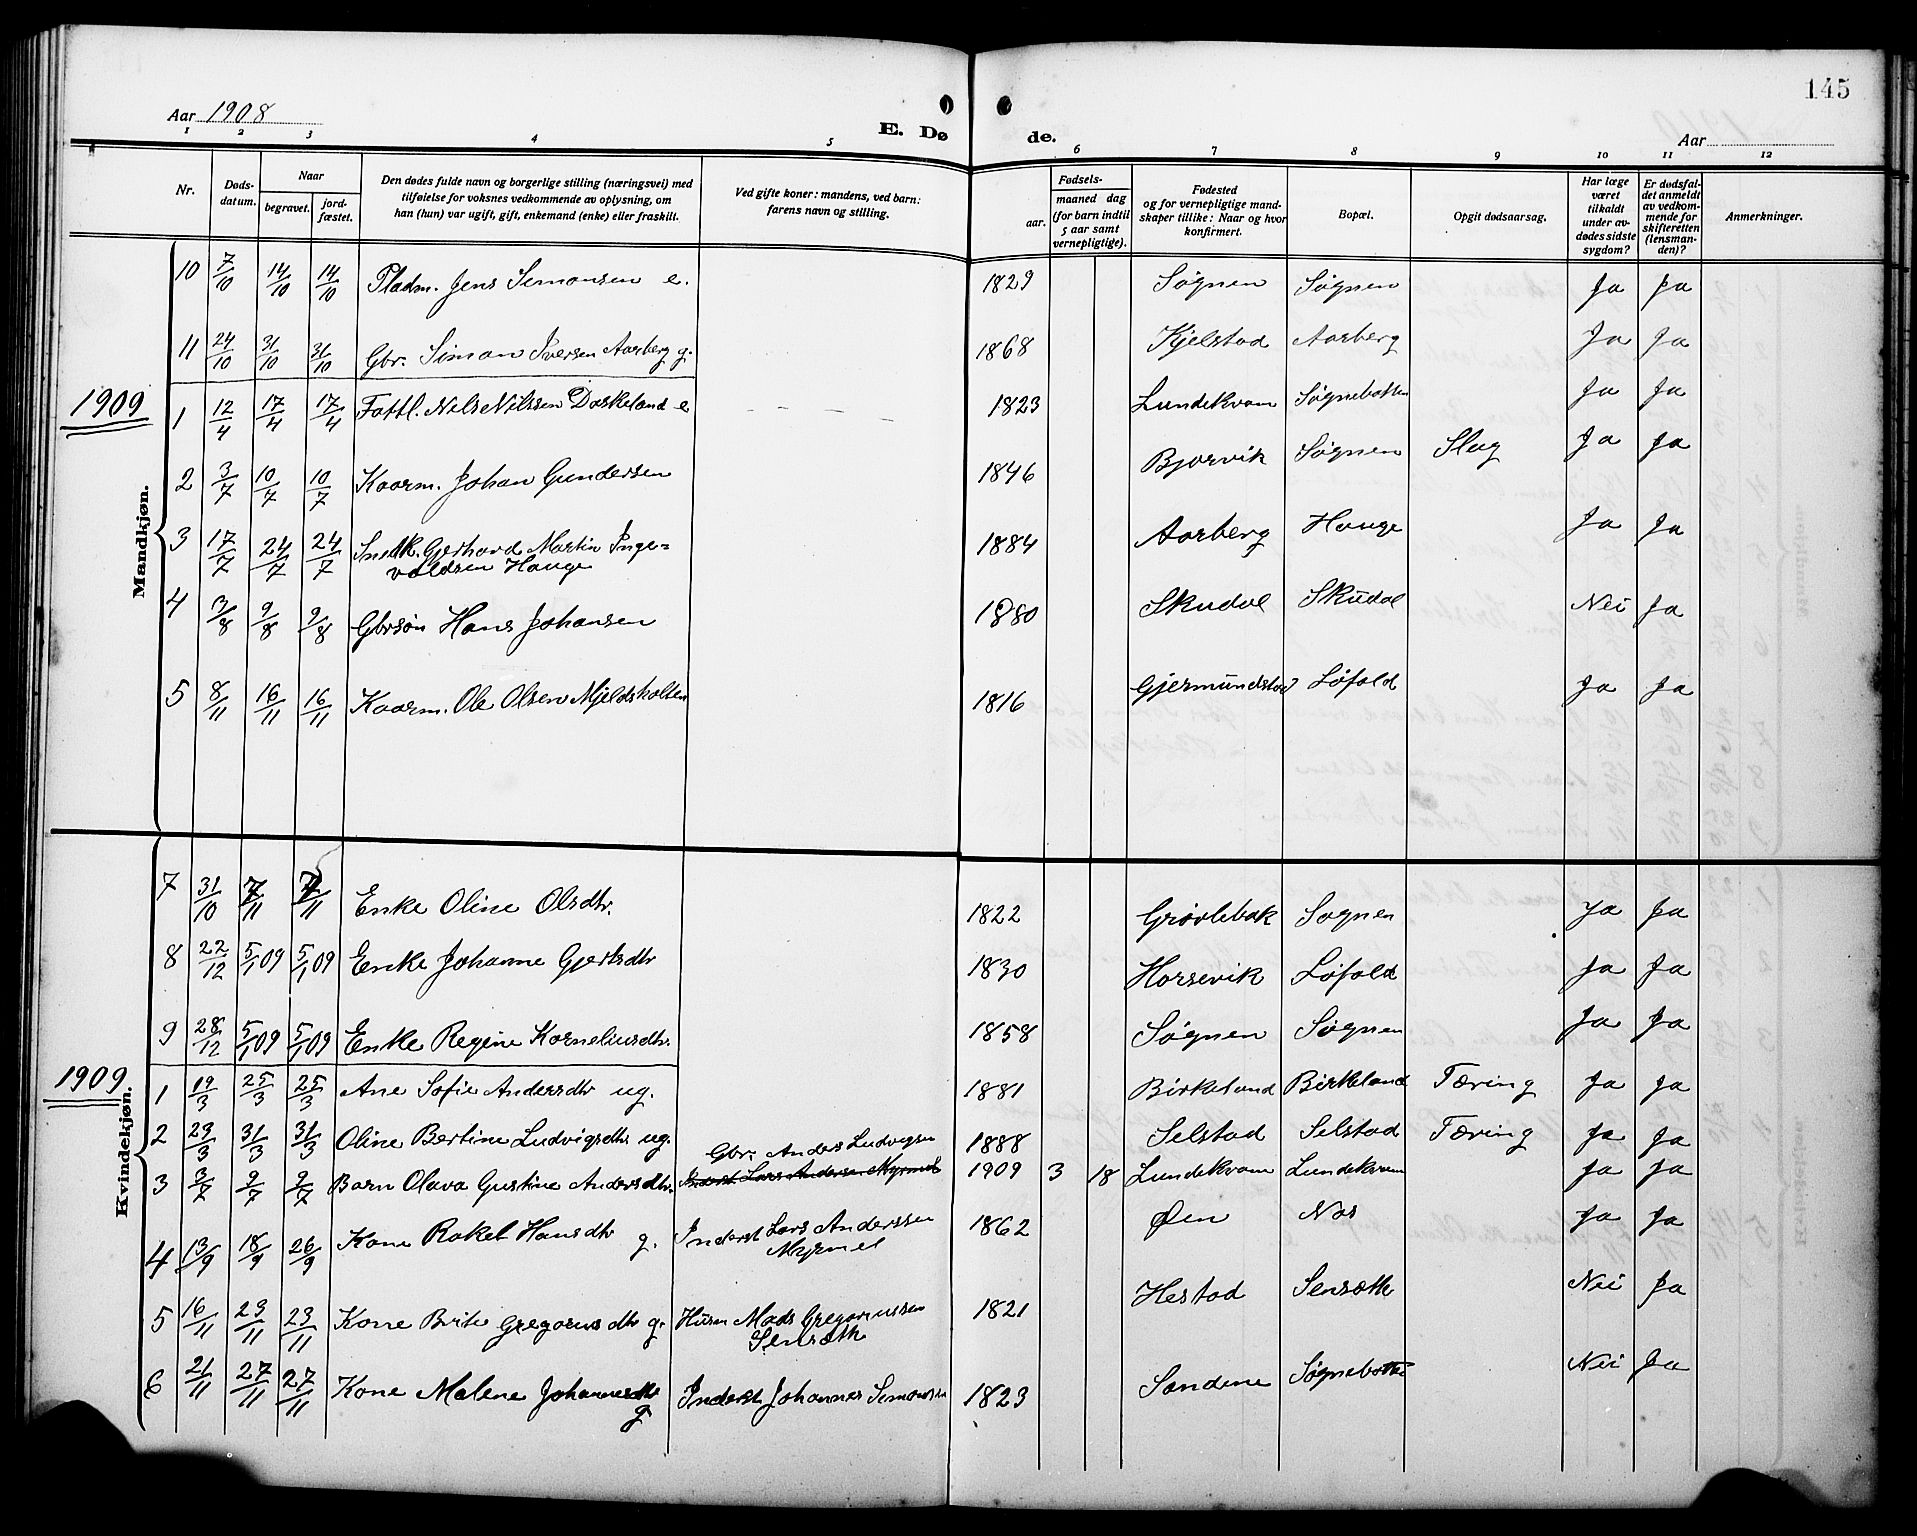 145
Aar 1908
E. Dø de.
Aar
1 2 3 4 5 6 7 8 9 10 11 12
Nr.
Døds-
datum.
Naar
begravet.
jord-
fæstet.
Den dødes fulde navn og borgerlige stilling (næringsvei) med
tilføielse for voksnes vedkommende av oplysning, om
han (hun) var ugift, gift, enkemand (enke) eller fraskilt.
Ved gifte koner: mandens, ved barn:
farens navn og stilling.
Fødsels-
aar.
maaned dag
(for barn indtil
5 aar samt
vernepligtige).
Fødested
og for vernepligtige mand-
skaper tillike: Naar og hvor
konfirmert.
Bopæl.
Opgit dødsaarsag.
Har læge
været
tilkaldt
under av-
dødes sidste
sygdom?
Er dødsfal-
det anmeldt
av vedkom-
mende for
skifteretten
(lensman-
den)?
Anmerkninger.
Mandkjøn.
10 7/10 14/10 14/10 Pladm. Jens Simonsen e. 1829 Søgnen Søgnen Ja Ja
11 24/10 31/10 31/10 Gbr. Simon Iversen Aarberg g. 1868 Kjelstad Aarberg Ja Ja
1909
1 12/4 17/4 17/4 Fattl. Nils Nilssen Daskeland e 1823 Lundekvam Søgnebotten Ja Ja
2 3/7 10/7 10/7 Kaarm. Johan Gundersen 1846 Bjorvik Søgnen Slag Ja Ja
3 17/7 24/7 24/7 Snedk. Gerhard Martin Inge=
valdsen Hauge 1884 Aarberg Hauge Ja Ja
4 3/8 9/8 9/8 Gbrsøn Hans Johansen 1880 Skudal Skudal Nei Ja
5 8/11 16/11 16/11 Kaarm. Ole Olsen Mjeldsholten 1816 Gjermundstad Løfald Ja Ja
Kvindekjøn.
7 31/10 7/11 7/11 Enke Oline Olsdtr. 1822 Grøvlebak Søgnen Ja Ja
8 22/12 5/1 09 5/1 09 Enke Johanne Gjertsdtr 1830 Horsevik Løfald Ja Ja
9 28/12 5/1 09 5/1 09 Enke Regine Korneliusdtr. 1858 Søgnen Søgnen Ja Ja
1909.
1 19/3 25/3 25/3 Ane Sofie Andersdtr ug. 1881 Birkeland Birkeland Tæring Ja Ja
2 23/3 31/3 31/3 Oline Bertine Ludvigsdtr. ug. 1888 Selstad Selstad Tæring Ja Ja
Gbr. Anders Ludvigsen
3 3/7 9/7 9/7 Barn Olava Gustine Andersdtr. Inderst Lars Andersen Myrmel 1909 3 18 Lundekvam Lundekvam Ja Ja
4 13/9 18/9 26/9 Kone Rakel Hansdtr g. Inderst Lars Anderssen
Myrmel 1862 Øen Nos Ja Ja
5 16/11 23/11 23/11 Kone Brite Gregoriusdtr g. Husm Mads Gregoriussen
Sensæth 1821 Hestad Sensæth Nei Ja
6 21/11 27/11 27/11 Kone Malene Johannesdtr g. Inderst Johannes Simonsen 1823 Sandene Søgnebotten Nei Ja